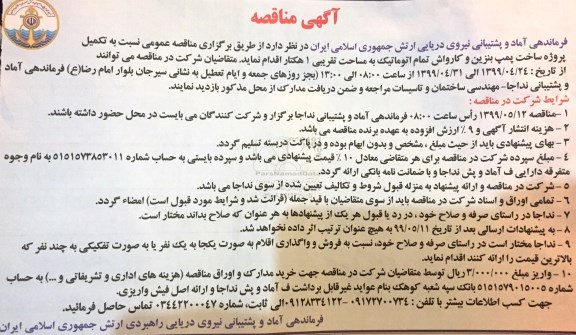 آگهی مناقصه
فرماندهی آماد و پشتیبانی نیروی دریایی ارتش جمهوری اسلامی ایران در نظر دارد از طریق برگزاری مناقصه عمومی نسبت به تکمیل
پروژه ساخت پمپ بنزین و کارواش تمام اتوماتیک به مساحت تقریبی ۱ هکتار اقدام نماید. متقاضیان شرکت در مناقصه می توانند
از تاریخ : ۱۳۹۹/۰۴/۲۴ الی ۱۳۹۹/۰۴/۳۱ از ساعت ۰۸:۰۰ الی ۱۳:۰۰ (بجز روزهای جمعه و ایام تعطیل به نشانی سیرجان بلوار امام رضا(ع) فرماندهی آماد
و پشتیبانی نداجا- مهندسی ساختمان و تاسیسات مراجعه و ضمن دریافت مدارک از محل مذکور بازدید نمایند.
شرایط شرکت در مناقصه :
۱ -مناقصه ۱۳۹۹/۰۵/۱۲ رأس ساعت ۰۸:۰۰ فرماندهی آماد و پشتیبانی نداجا برگزار و شرکت کنندگان می بایست در محل حضور داشته باشند.
۲ - هزینه انتشار آگهی و ۹ ٪ ارزش افزوده به عهده برنده مناقصه می باشد.
۳ - بهای پیشنهادی باید از حیث مبلغ ، مشخص و بدون ابهام بوده و در پاکت دربسته تسلیم گردد.
۴ - مبلغ سپرده شرکت در مناقصه برای هر متقاضی معادل ۱۰ ٪ قیمت پیشنهادی می باشد و سپرده بایستی به حساب شماره ۵۱۵۱۵۷۳۸۵۳۰۱۱ به نام وجوه
متفرقه دارایی ف آماد و پش نداجا و با ضمانت نامه بانکی ارائه گردد.
۵ - شرکت در مناقصه و ارائه پیشنهاد به منزله قبول شروط و تکالیف تعیین شده از سوی نداجا می باشد.
۶ - تمامی اوراق و اسناد شرکت در مناقصه باید از سوی متقاضیان با قید جمله (قرائت شد و شرایط مورد قبول است) امضاء گردد.
۷ - نداجا در راستای صرفه و صلاح خود ، در رد یا قبول هر یک از پیشنهادها به هر عنوان که صلاح بداند مختار است.
۸ - به پیشنهادات ارسالی بعد از تاریخ ۹۹/۰۵/۱۱ به هیچ عنوان ترتیب اثر داده نخواهد شد.
۹ - نداجا مختار است در راستای صرفه و صلاح خود، نسبت به فروش و واگذاری اقلام به صورت یکجا به یک نفر یا به صورت تفکیکی به چند نفر که
بالاترین قیمت را ارائه کنند اقدام نماید.
۱۰ - واریز مبلغ ۳/۰۰۰/۰۰۰ ریال توسط متقاضیان شرکت در مناقصه جهت خرید مدارک و اوراق مناقصه (هزینه های اداری و تشریفاتی و ...) به حساب
شماره ۵۱۵۱۵۷۹۰۱۵۰۰۵ بانک سپه شعبه کوهک بنام عواید غیرقابل برداشت ف آماد و پش نداجا و ارائه اصل فیش واریزی.
جهت کسب اطلاعات بیشتر با تلفن : ۰۹۱۷۲۷۰۰۷۳۴ -۰۹۱۲۸۳۳۴۱۲۲الی ثابت، شماره ۰۳۴۴۲۲۰۰۰۴۷ تماس حاصل فرمائید.
فرماندهی آماد و پشتیبانی نیروی دریایی راهبردی ارتش جمهوری اسلامی ایران